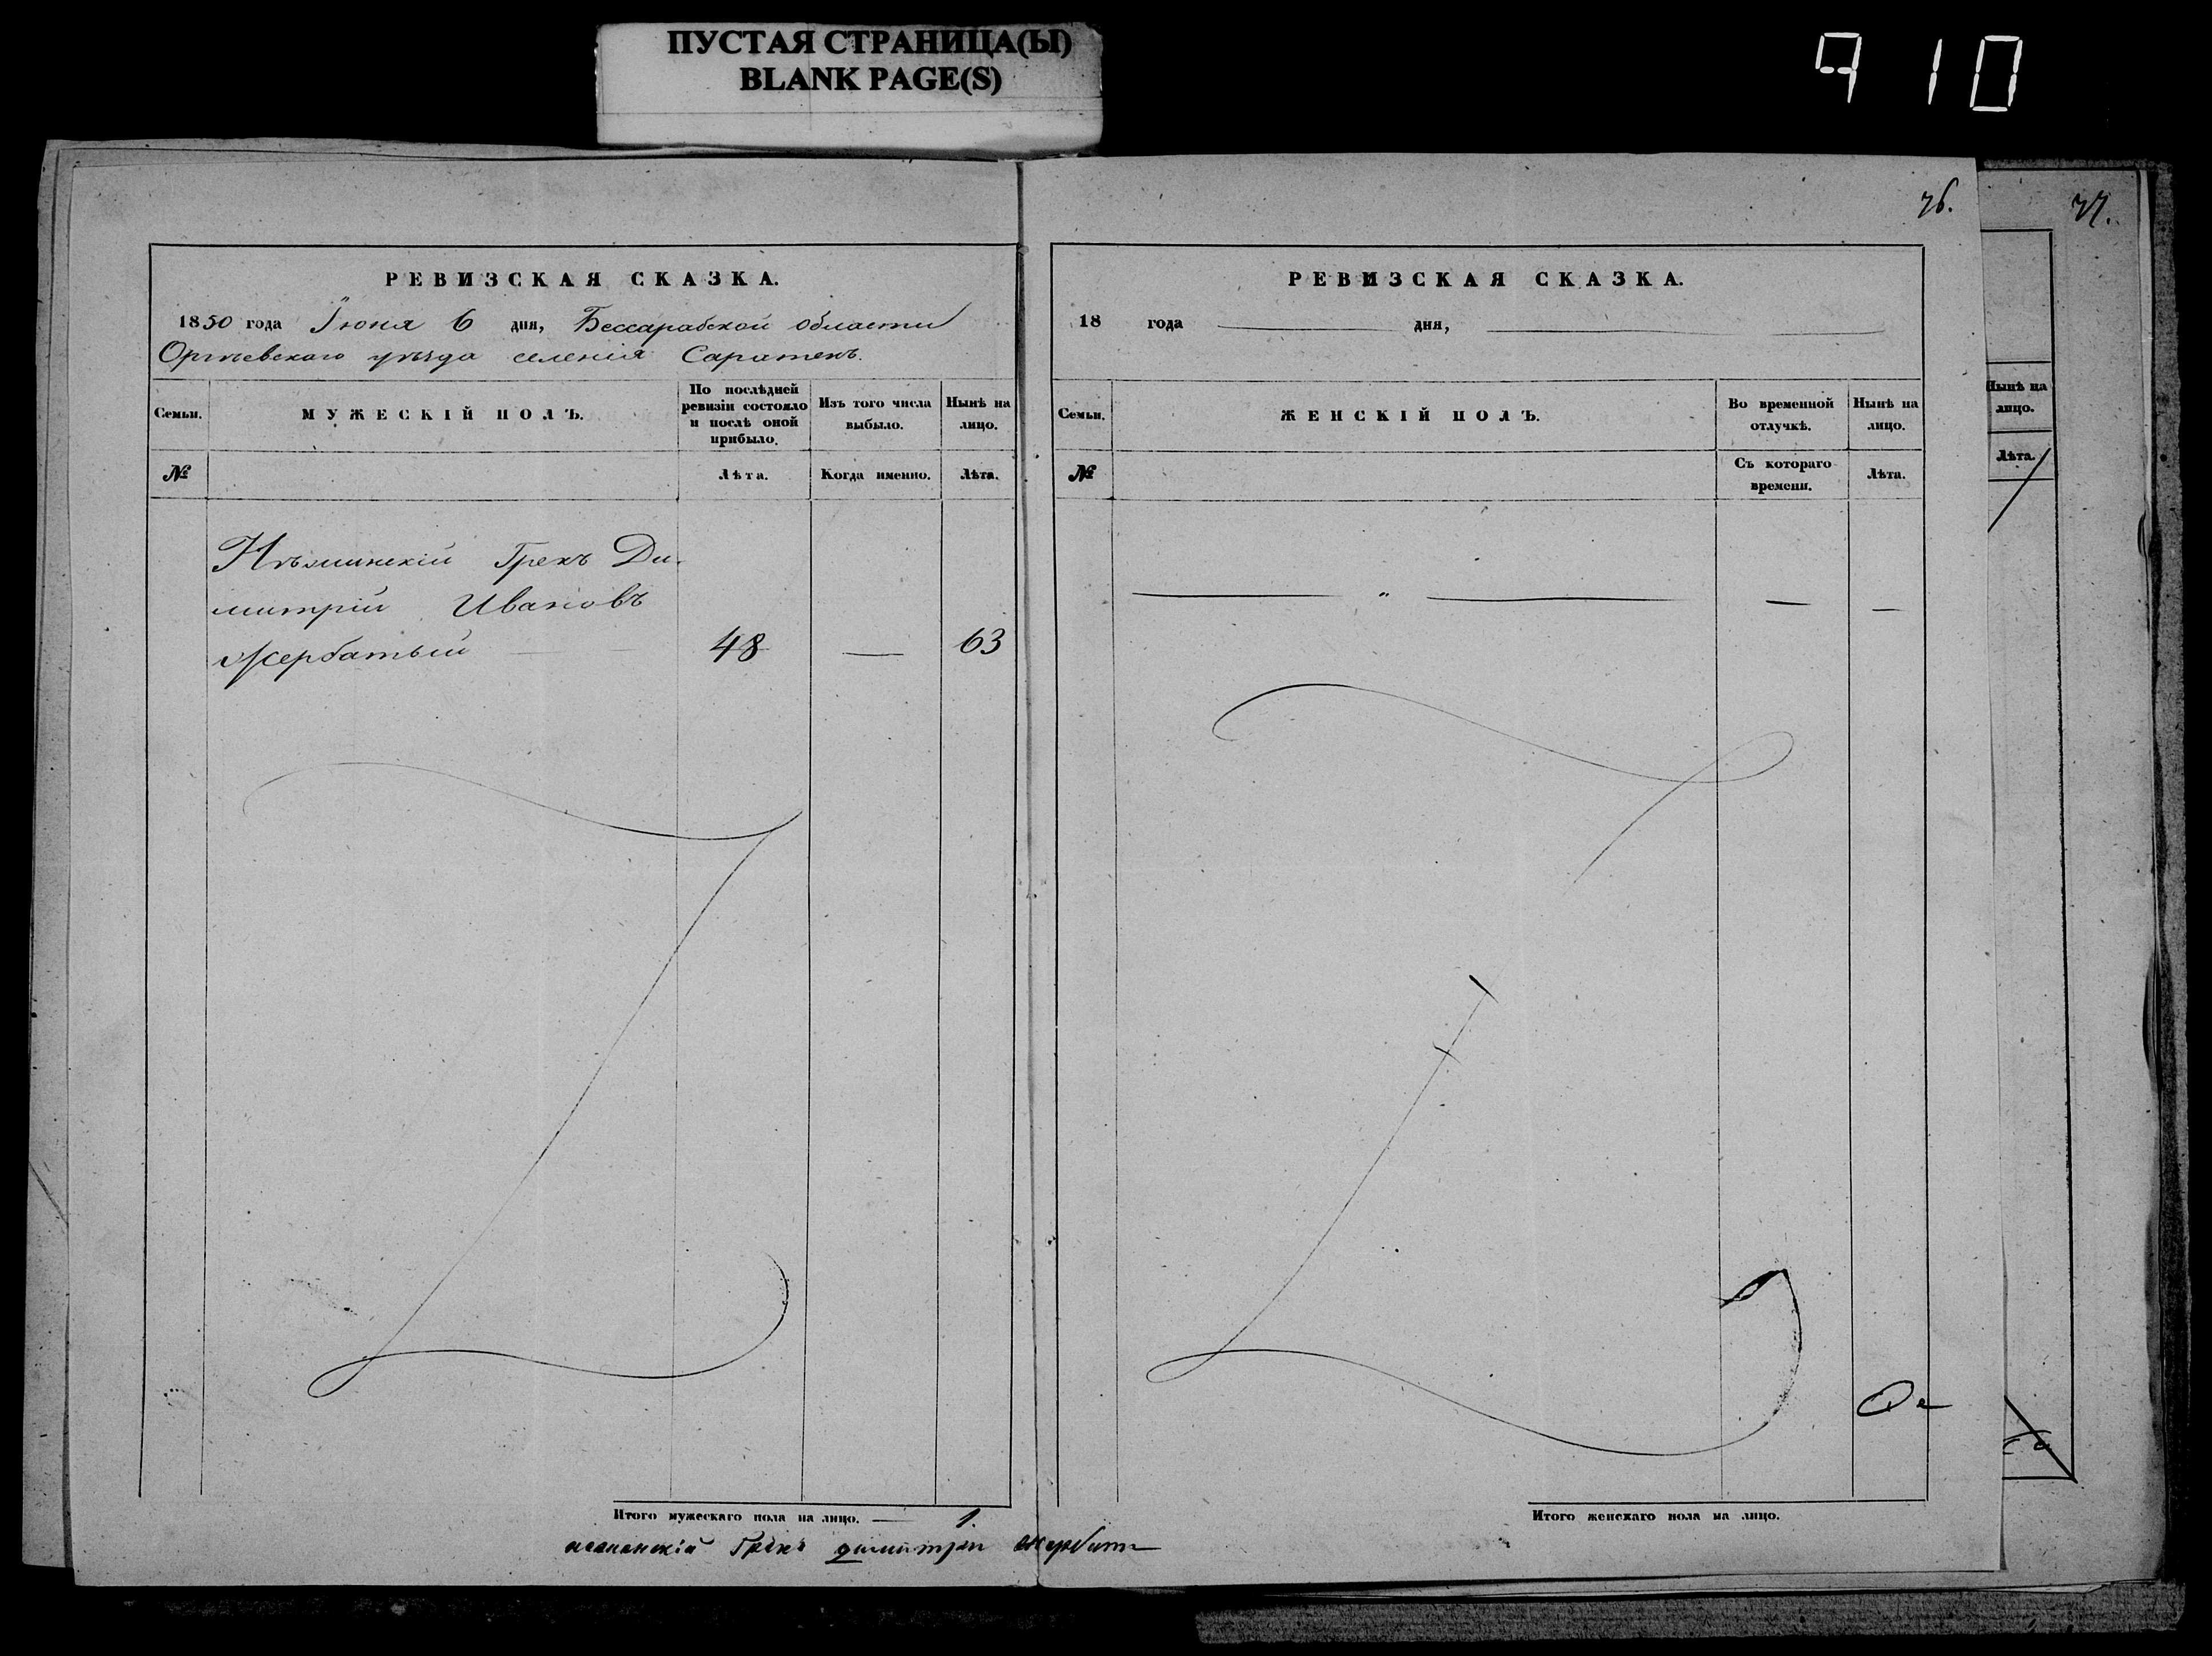 ПУСТАЯ СТРАНИЦА(Ы)
BLANK PAGE(S)
910
76.
77.
РЕВИЗСКАЯ СКАЗКА.
1850 года Іюня 6 дня, Бессарабской области
Оргѣевскаго уѣзда селенія Саратенъ.
Семьи.
МУЖЕСКІЙ ПОЛЪ.
По послѣдней ревизіи состояло и послѣ оной прибыло.
Изъ того числа выбыло.
Нынѣ на лицо.
№
Лѣта.
Когда именно.
Лѣта.
Нѣжинскій Грекъ Ди-
митрій Ивановъ
Жербатый 48 — 63
Итого мужескаго пола на лицо. — 1.
Грекъ димитри жербати
РЕВИЗСКАЯ СКАЗКА.
18 года дня,
Семьи.
ЖЕНСКІЙ ПОЛЪ.
Во временной отлучкѣ.
Нынѣ на лицо.
№
Съ котораго времени.
Лѣта.
— " — — —
Итого женскаго пола на лицо.
Нынѣ на лицо.
Лѣта.